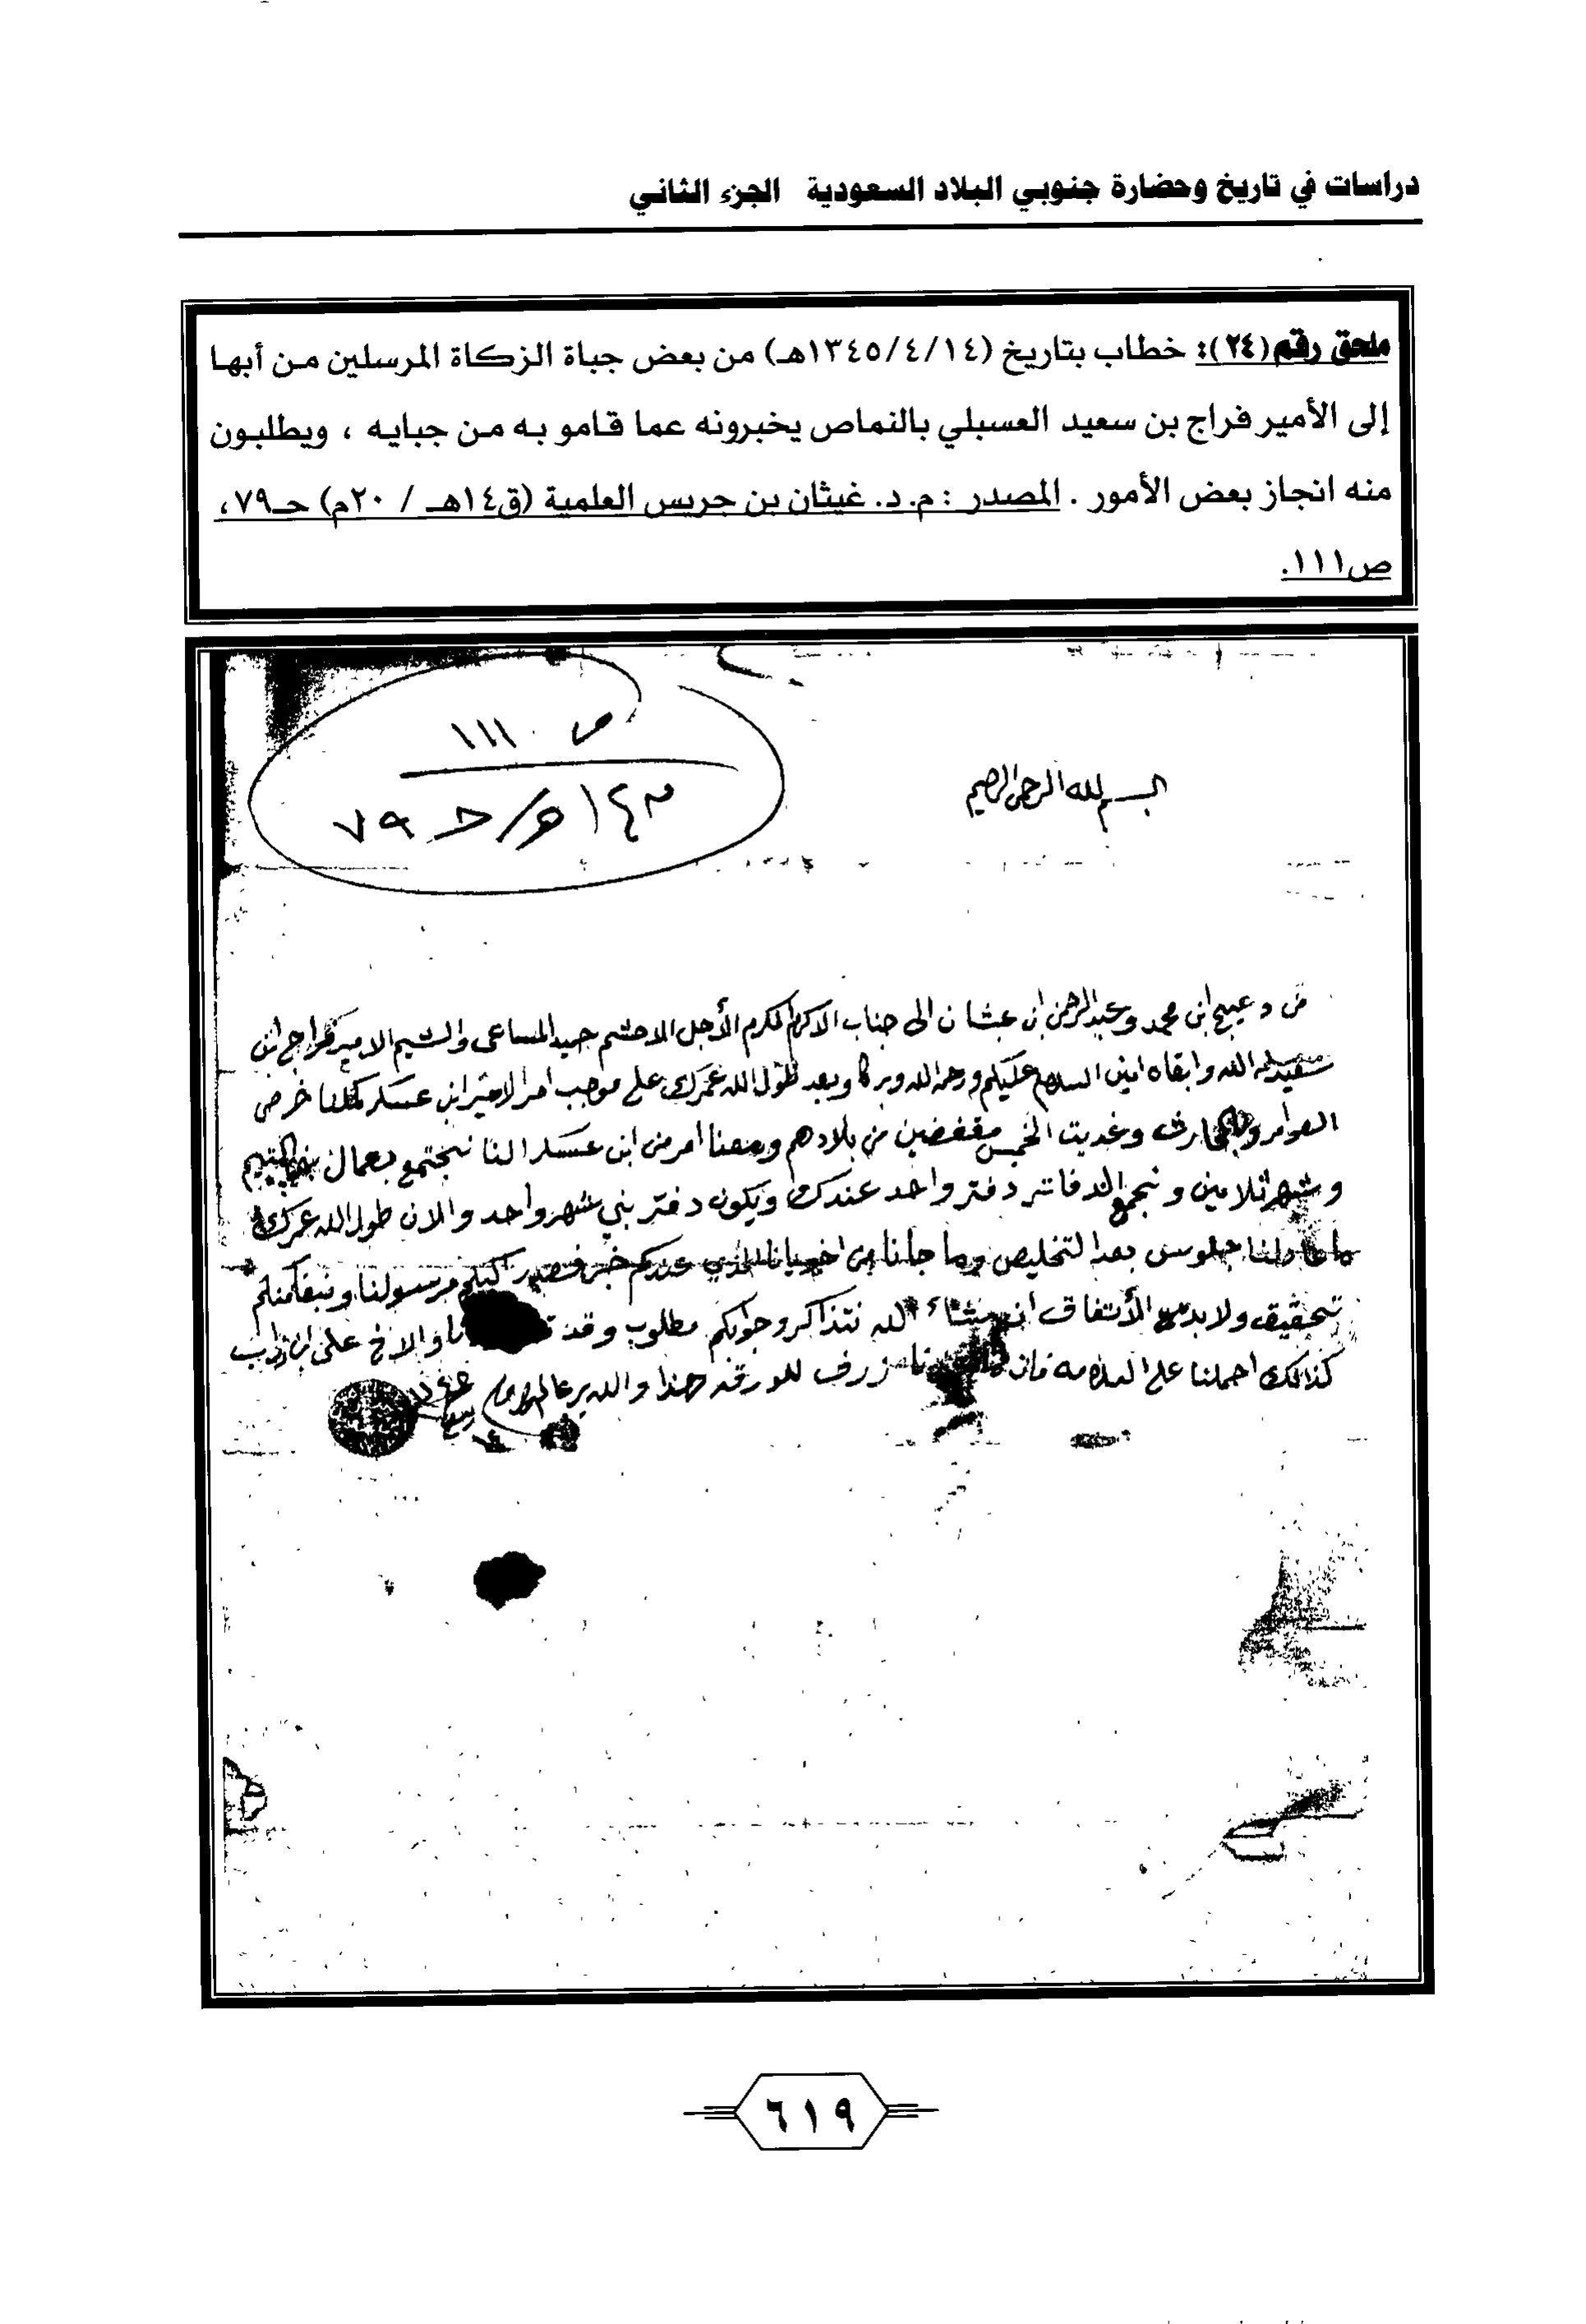 دراسات في تاريخ وحضارة جنوبي البلاد السعودية الجزء الثاني
ملحق رقم (٢٤): خطاب بتاريخ (١٣٤٥/٤/١٤هـ) من بعض جباة الزكاة المرسلين من أبها
إلى الأمير فراج بن سعيد العسبلي بالنماص يخبرونه عما قامو به من جبايه ، ويطلبون
منه انجاز بعض الأمور . المصدر : م. د. غيثان بن جريس العلمية (ق١٤هـ / ٢٠م) حـ٧٩،
ص١١١.
ص ١١١
١٤ هـ/ حـ ٧٩
بسم الله الرحمن الرحيم
من دعيبج ابن محمد وعبدالرحمن ابن عشان الى جناب الاكرم المكرم الأجل الاحشم حميد المساعى والشيم الامير فراج ابن
سعيد سلمه الله وابقاه امين السلام عليكم ورحمة الله وبركا وبعد طول الله عمرك على موجب امر الامير ابن عسكر كملنا خرص
العوامر والحارث وغديت الخمس مقفضين من بلادهم ومعنا امر من ابن عسكر اننا نجتمع بعمال بني
وشهر ثلامين ونجمع الدفاتر دفتر واحد عندك ويكون دفتر بني شهر واحد والان طول الله عمرك
ما لنا جلوس بعد التخليص وما جانا من اخويانا الذي عندكم خبر
تحقيق ولابد من الأتفاق ان شاء الله نتذاكر وجوابكم مطلوب وقد والاخ على ابن
كذالك احملنا على السلامه فان للورقه هذا والله يرعاك